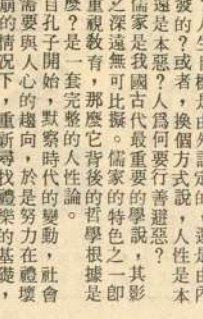 是由外定的，還是由內
發的？或者，換個方式說，人性是本
還是本惡？人爲何要行善避惡？
儒家是我國古代最重要的學說，其影
之深遠無可比擬。儒家的特色之一卽
重視敎育，那麼它背後的哲學根據是
麼？是一套完整的人性論。
自孔子開始，默察時代的變動，社會
需要與人心的趨向，於是努力在禮壞
崩的情況下，重新尋找禮樂的基礎，